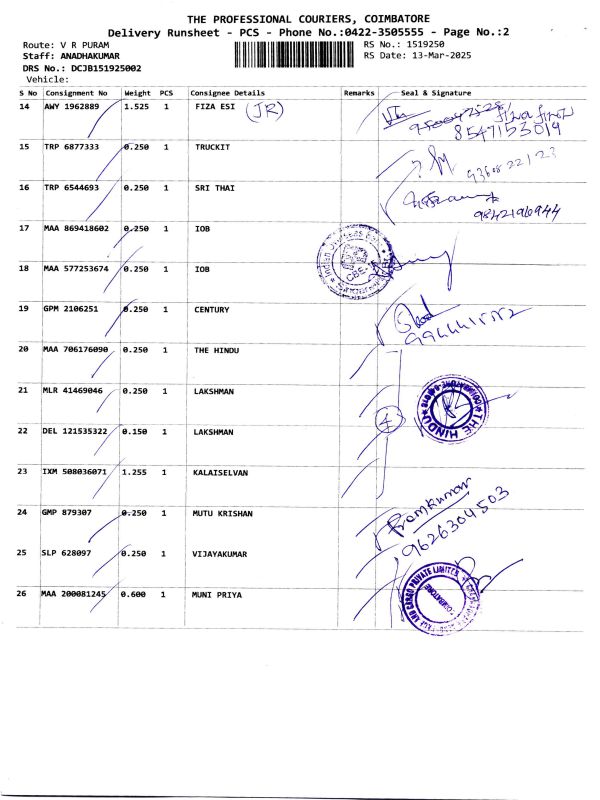 THE PROFESSIONAL COURIERS, COIMBATORE
Delivery Runsheet - PCS - Phone No.:0422-3505555 - Page No.:2
Route: V R PURAM
RS No.: 1519250
Staff: ANADHAKUMAR
RS Date: 13-Mar-2025
DRS No.: DCJB151925002
Vehicle:
S No Consignment No Weight PCS Consignee Details Remarks Seal & Signature
14 AWY 1962889 1.525 1 FIZA ESI (JR)
8547153019
15 TRP 6877333 0.250 1 TRUCKIT
9360822123
16 TRP 6544693 0.250 1 SRI THAI
9842196944
17 MAA 869418602 0.250 1 IOB
18 MAA 577253674 0.250 1 IOB
19 GPM 2106251 0.250 1 CENTURY
20 MAA 706176090 0.250 1 THE HINDU
21 MLR 41469046 0.250 1 LAKSHMAN
THE HINDU
22 DEL 121535322 0.150 1 LAKSHMAN
4
23 IXM 508036071 1.255 1 KALAISELVAN
24 GMP 879307 0.250 1 MUTU KRISHAN
Pramkumar
9626304503
25 SLP 628097 0.250 1 VIJAYAKUMAR
26 MAA 200081245 0.600 1 MUNI PRIYA